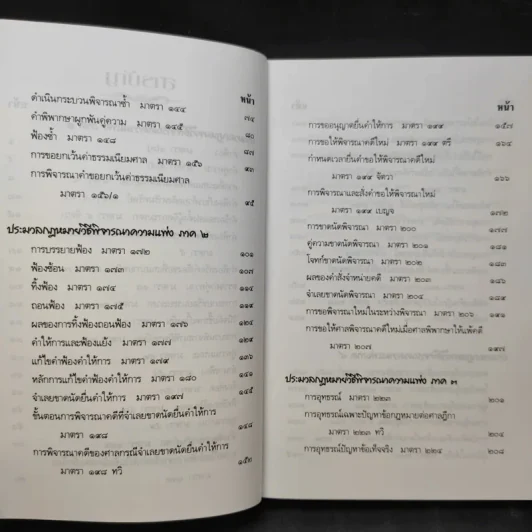 หน้า
ดำเนินกระบวนพิจารณาซ้ำ มาตรา ๑๔๔ ๗๔
คำพิพากษาผูกพันคู่ความ มาตรา ๑๔๕ ๘๐
ฟ้องซ้ำ ๘๗
การขอยกเว้นค่าธรรมเนียมศาล มาตรา ๑๕๖ ๙๓
การพิจารณาคำขอยกเว้นค่าธรรมเนียมศาล
มาตรา ๑๕๖/๑ ๙๕
ประมวลกฎหมายวิธีพิจารณาความแพ่ง ภาค ๒
การบรรยายฟ้อง มาตรา ๑๗๒ ๑๐๑
ฟ้องซ้อน มาตรา ๑๗๓ ๑๐๗
ทิ้งฟ้อง มาตรา ๑๗๔ ๑๑๔
ถอนฟ้อง มาตรา ๑๗๕ ๑๑๙
ผลของการทิ้งฟ้องถอนฟ้อง มาตรา ๑๗๖ ๑๒๔
คำให้การและฟ้องแย้ง มาตรา ๑๗๗ ๑๒๙
แก้ไขคำฟ้องคำให้การ มาตรา ๑๗๙ ๑๓๖
หลักการแก้ไขคำฟ้องคำให้การ มาตรา ๑๘๐ ๑๔๑
จำเลยขาดนัดยื่นคำให้การ มาตรา ๑๙๗ ๑๔๕
ขั้นตอนการพิจารณาคดีที่จำเลยขาดนัดยื่นคำให้การ
มาตรา ๑๙๘
การพิจารณาคดีของศาลกรณีจำเลยขาดนัดยื่นคำให้การ
มาตรา ๑๙๘ ทวิ ๑๕๒
หน้า
การขออนุญาตยื่นคำให้การ มาตรา ๑๙๙ ๑๕๗
การขอให้พิจารณาคดีใหม่ มาตรา ๑๙๙ ตรี ๑๖๔
กำหนดเวลายื่นคำขอให้พิจารณาคดีใหม่
มาตรา ๑๙๙ จัตวา ๑๖๖
การพิจารณาและสั่งคำขอให้พิจารณาใหม่
มาตรา ๑๙๙ เบญจ ๑๗๒
การขาดนัดพิจารณา มาตรา ๒๐๐ ๑๗๗
คู่ความขาดนัดพิจารณา มาตรา ๒๐๑ ๑๘๑
โจทก์ขาดนัดพิจารณา มาตรา ๒๐๒ ๑๘๓
ผลของคำสั่งจำหน่ายคดี มาตรา ๒๐๓ ๑๘๖
จำเลยขาดนัดพิจารณา มาตรา ๒๐๔ ๑๘๙
การขอพิจารณาใหม่ในระหว่างพิจารณา มาตรา ๒๐๖ ๑๙๓
การขอให้ศาลพิจารณาคดีใหม่เมื่อศาลพิพากษาให้แพ้คดี
มาตรา ๒๐๗ ๑๙๗
ประมวลกฎหมายวิธีพิจารณาความแพ่ง ภาค ๓
การอุทธรณ์ มาตรา ๒๒๓ ๒๐๑
การอุทธรณ์เฉพาะปัญหาข้อกฎหมายต่อศาลฎีกา
มาตรา ๒๒๓ ทวิ ๒๐๔
การอุทธรณ์ปัญหาข้อเท็จจริง มาตรา ๒๒๔ ๒๐๘